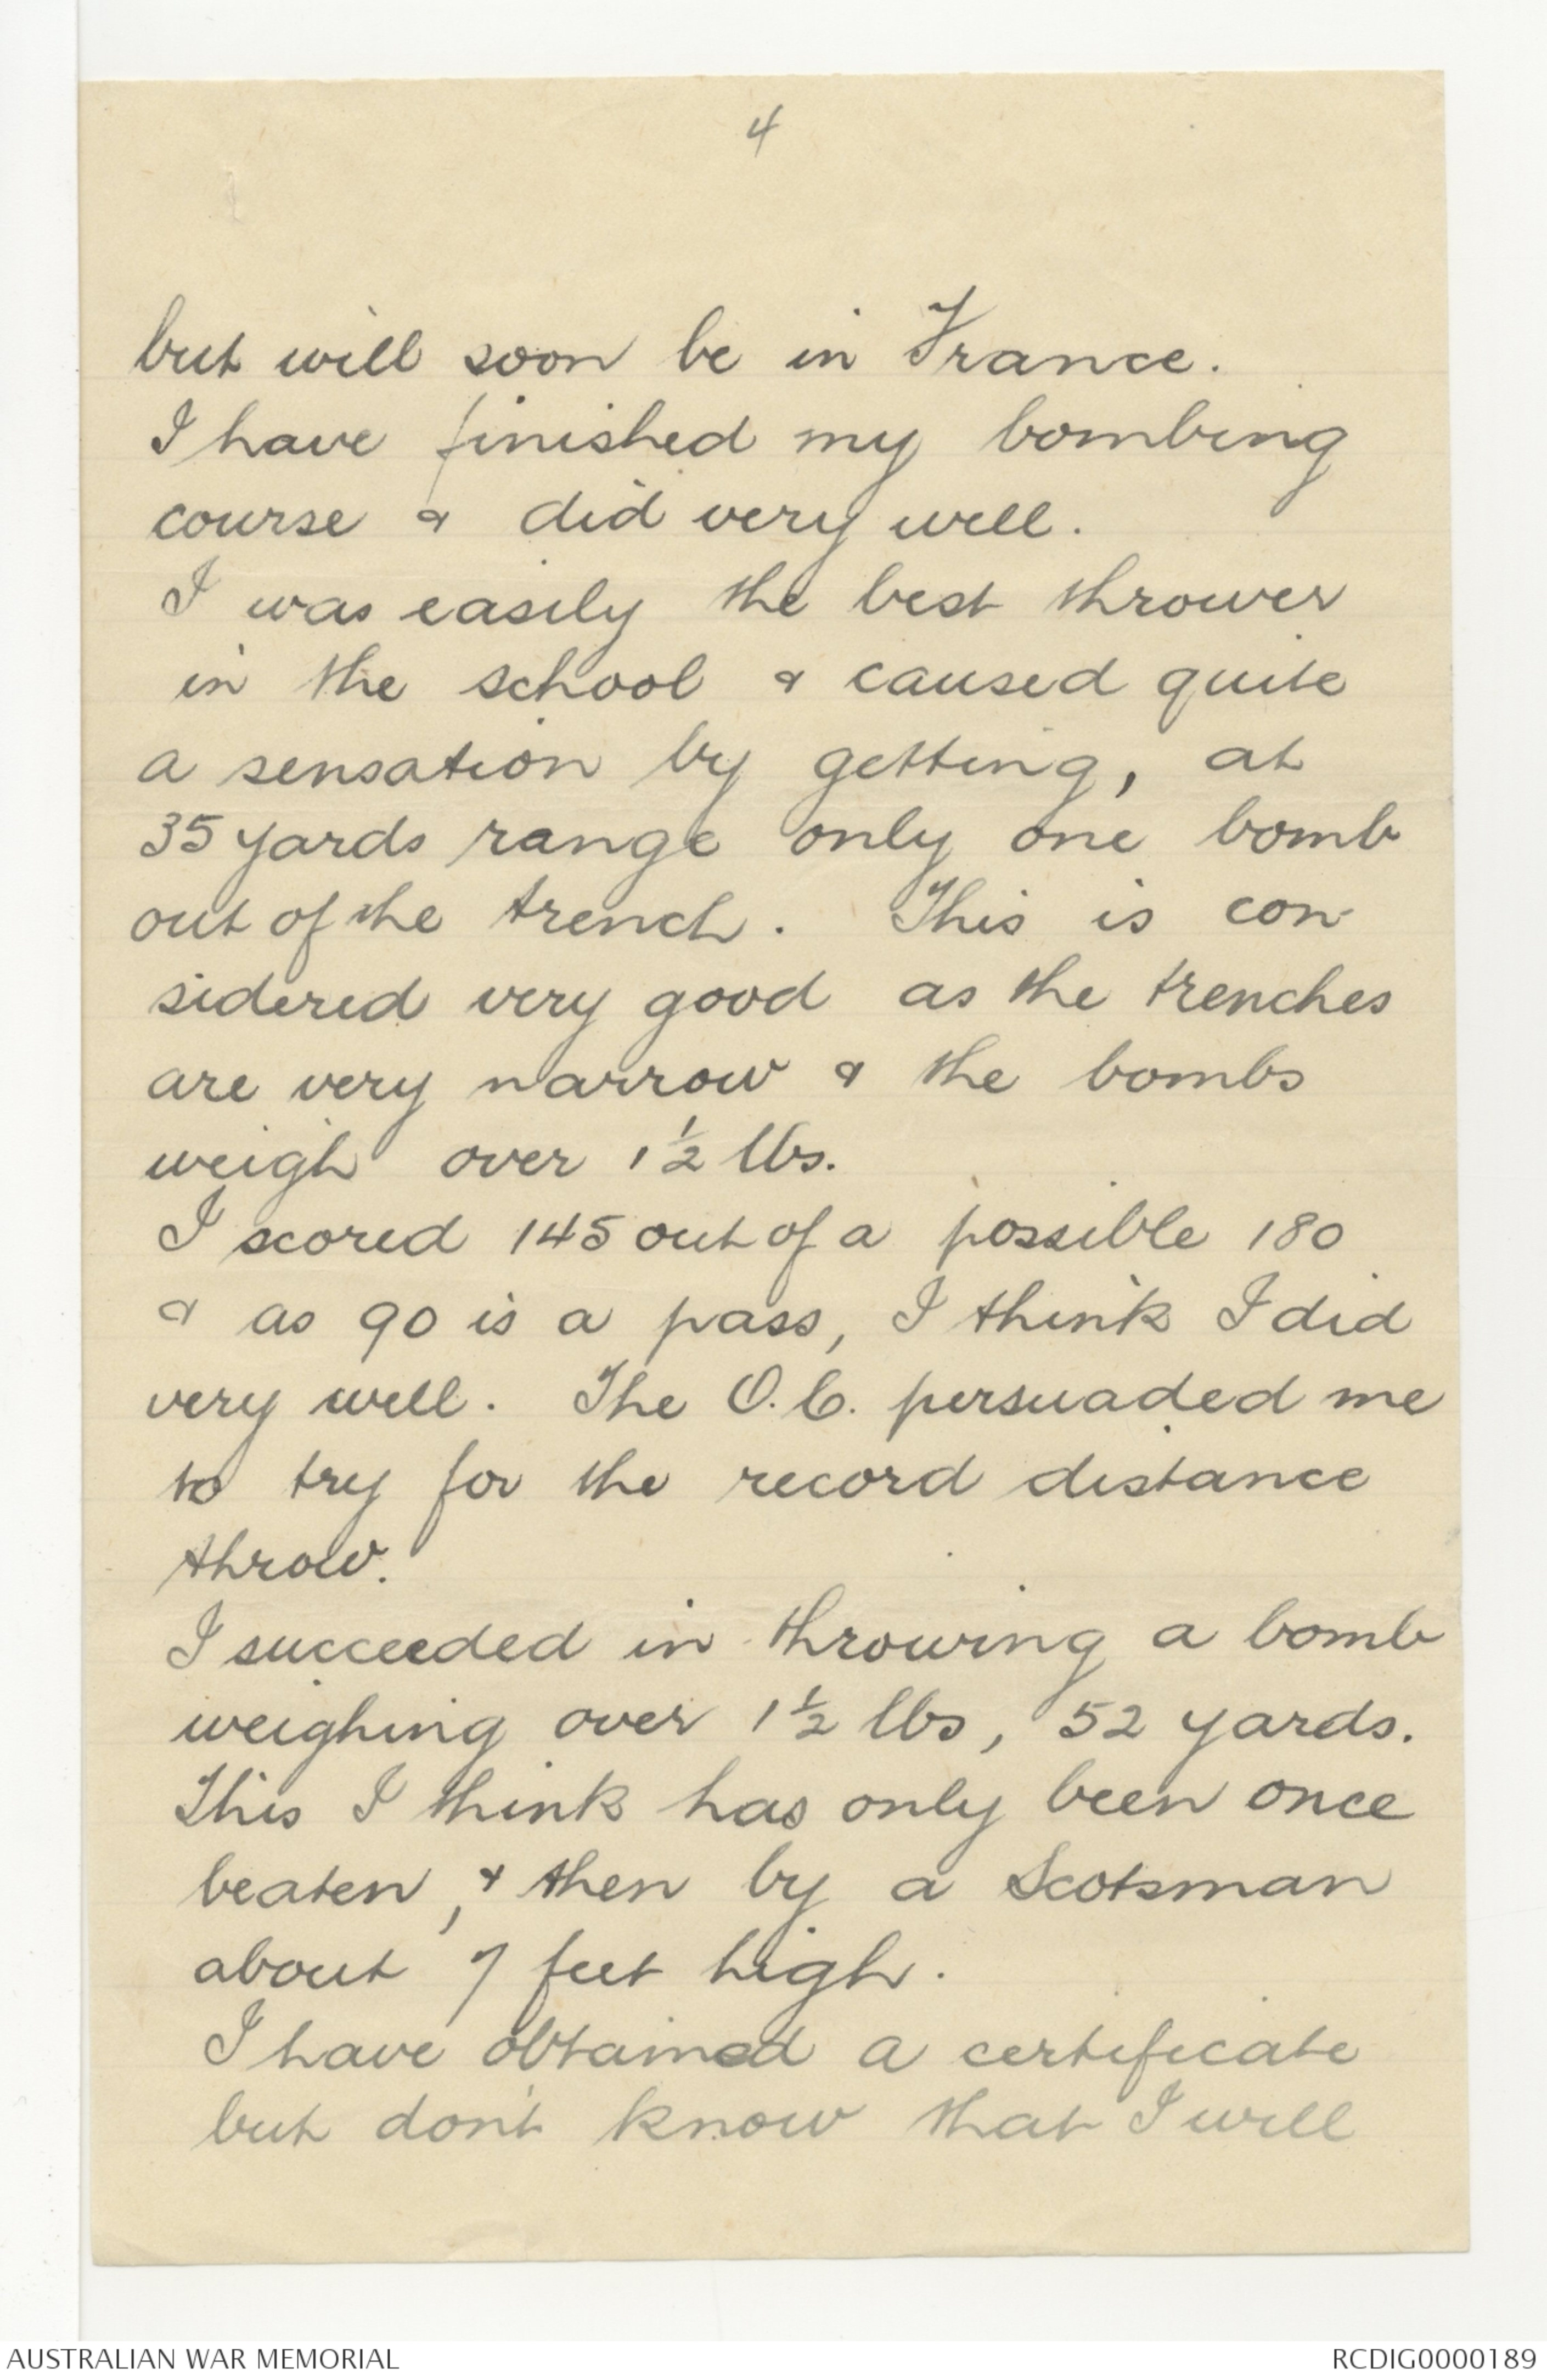 4
but will soon be in France.
I have finished my bombing
course & did very well.
I was easily the best thrower
in the school & caused quite
a sensation by getting, at
35 yards range only one bomb
out of the trench. This is con-
sidered very good as the trenches
are very narrow & the bombs
weigh over 1½ lbs.
I scored 145 out of a possible 180
& as 90 is a pass, I think I did
very well. The O.C. persuaded me
to try for the record distance
throw.
I succeeded in throwing a bomb
weighing over 1½ lbs, 52 yards.
This I think has only been once
beaten, & then by a Scotsman
about 7 feet high.
I have obtained a certificate
but don't know that I will
AUSTRALIAN WAR MEMORIAL
RCDIG0000189